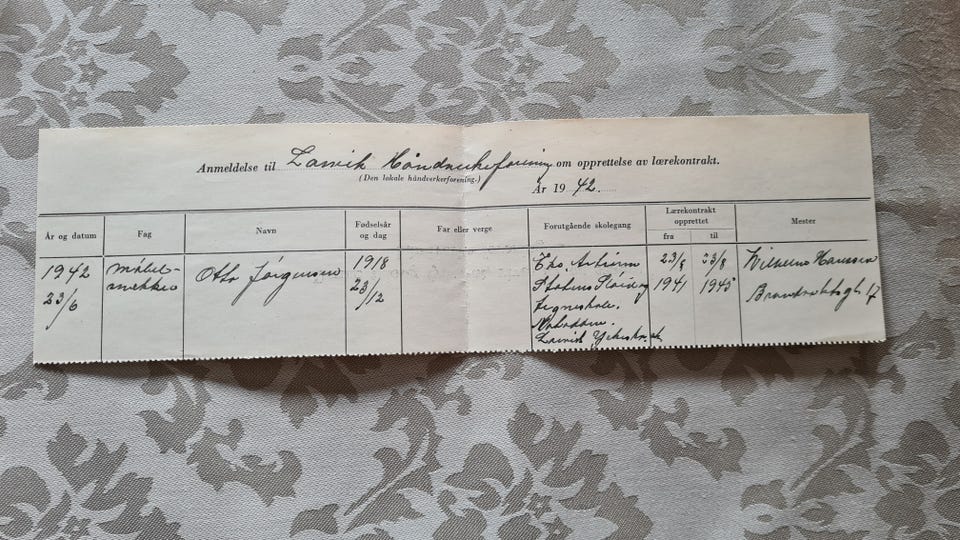 Anmeldelse til Larvik Håndverkerforening om opprettelse av lærekontrakt.
(Den lokale håndverkerforening.)
År 1942.
År og datum
Fag
Navn
Fødselsår og dag
Far eller verge
Forutgående skolegang
Lærekontrakt opprettet
fra
til
Mester
1942
23/6
møbel-
snekker
Otto Jørgensen
1918
23/12
Statens
tegneskole.
Notodden.
Larvik Yrkesskole
23/8
1941
23/8
1945
Wilhelm Hanssen
17